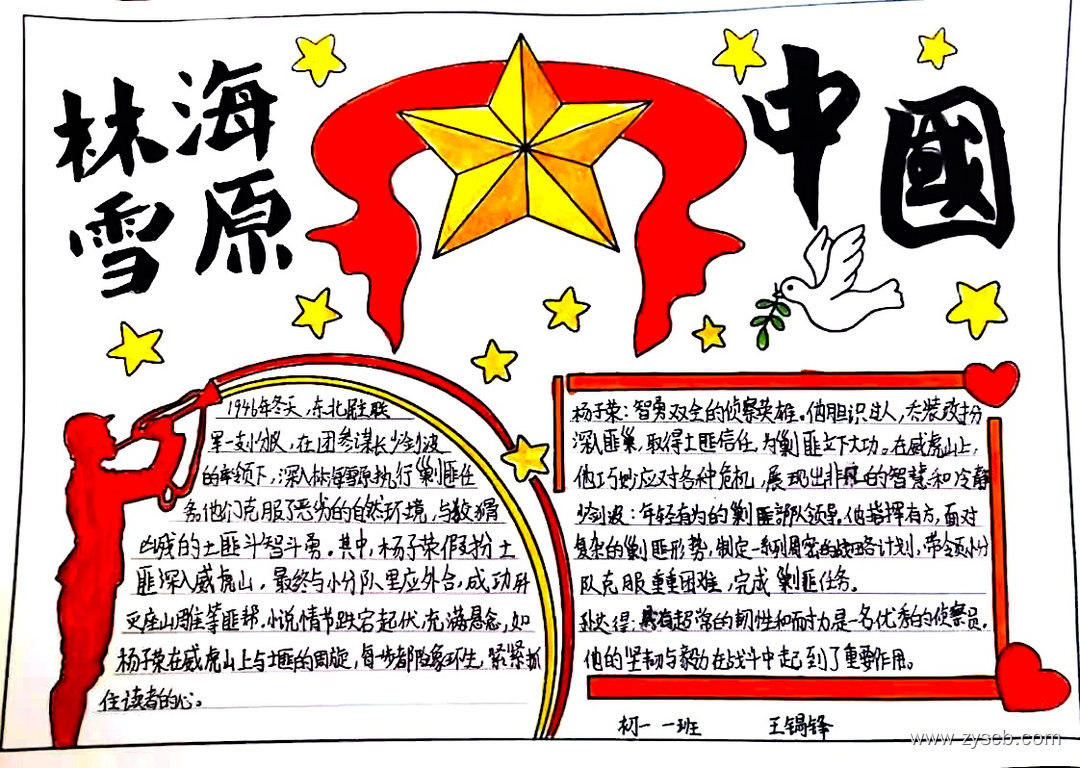 林海
雪原
中國
1946年冬天,东北民主联
军一支小分队,在团参谋长少剑波
的率领下,深入林海雪原执行剿匪任
务他们克服了恶劣的自然环境,与狡猾
凶残的土匪斗智斗勇。其中,杨子荣假扮土
匪深入威虎山,最终与小分队里应外合,成功歼
灭座山雕等匪帮。小说情节跌宕起伏,充满悬念,如
杨子荣在威虎山上与土匪的周旋,每步都险象环生,紧紧抓
住读者的心。
杨子荣:智勇双全的侦察英雄。他胆识过人,乔装改扮
深入匪巢,取得土匪信任,为剿匪立下大功。在威虎山上,
他巧妙应对各种危机,展现出非凡的智慧和冷静
少剑波:年轻有为的剿匪部队领导。他指挥有方,面对
复杂的剿匪形势,制定一系列周密的战略计划,带领小分
队克服重重困难,完成剿匪任务。
孙达得:具有超常的韧性和耐力是一名优秀的侦察员。
他的坚韧与毅力在战斗中起到了重要作用。
初一 一班 王锡锋
www.zyseb.com